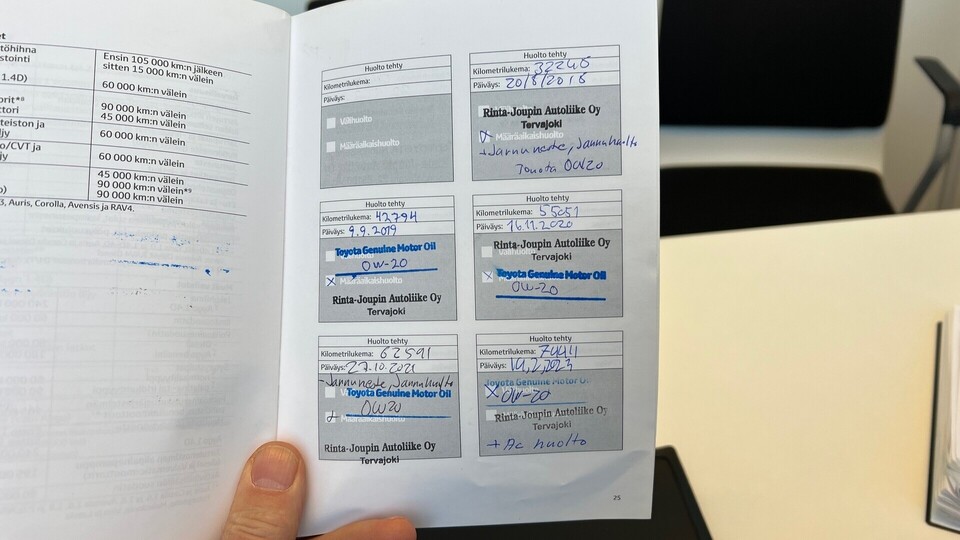 et
töhihna
stointi
1.4D)
Ensin 105 000 km:n jälkeen
sitten 15 000 km:n välein
60 000 km:n välein
orit*⁸
ttori
90 000 km:n välein
45 000 km:n välein
teiston ja
ljy
60 000 km:n välein
o/CVT ja
y
60 000 km:n välein
o)
45 000 km:n välein
90 000 km:n välein*⁹
90 000 km:n välein
3, Auris, Corolla, Avensis ja RAV4.
Huolto tehty
Kilometrilukema:
Päiväys:
Välihuolto
Määräaikaishuolto
Huolto tehty
Kilometrilukema: 32246
Päiväys: 20/8/2018
Rinta-Joupin Autoliike Oy
Tervajoki
Määräaikaishuolto
+Jarruneste, Jarruhuolto
Toyota 0W20
Huolto tehty
Kilometrilukema: 42794
Päiväys: 9.9.2019
Toyota Genuine Motor Oil
0W-20
Määräaikaishuolto
Rinta-Joupin Autoliike Oy
Tervajoki
Huolto tehty
Kilometrilukema: 55051
Päiväys: 16.11.2020
Rinta-Joupin Autoliike Oy
Välihuolto
Tervajoki
Toyota Genuine Motor Oil
0W-20
Huolto tehty
Kilometrilukema: 62591
Päiväys: 27.10.2021
-Jarruneste, Jarruhuolto
Toyota Genuine Motor Oil
0W20
Rinta-Joupin Autoliike Oy
Tervajoki
Huolto tehty
Kilometrilukema:
Päiväys: 14.2.2023
Toyota Genuine Motor Oil
0W-20
Rinta-Joupin Autoliike Oy
Tervajoki
+ Ac huolto
25